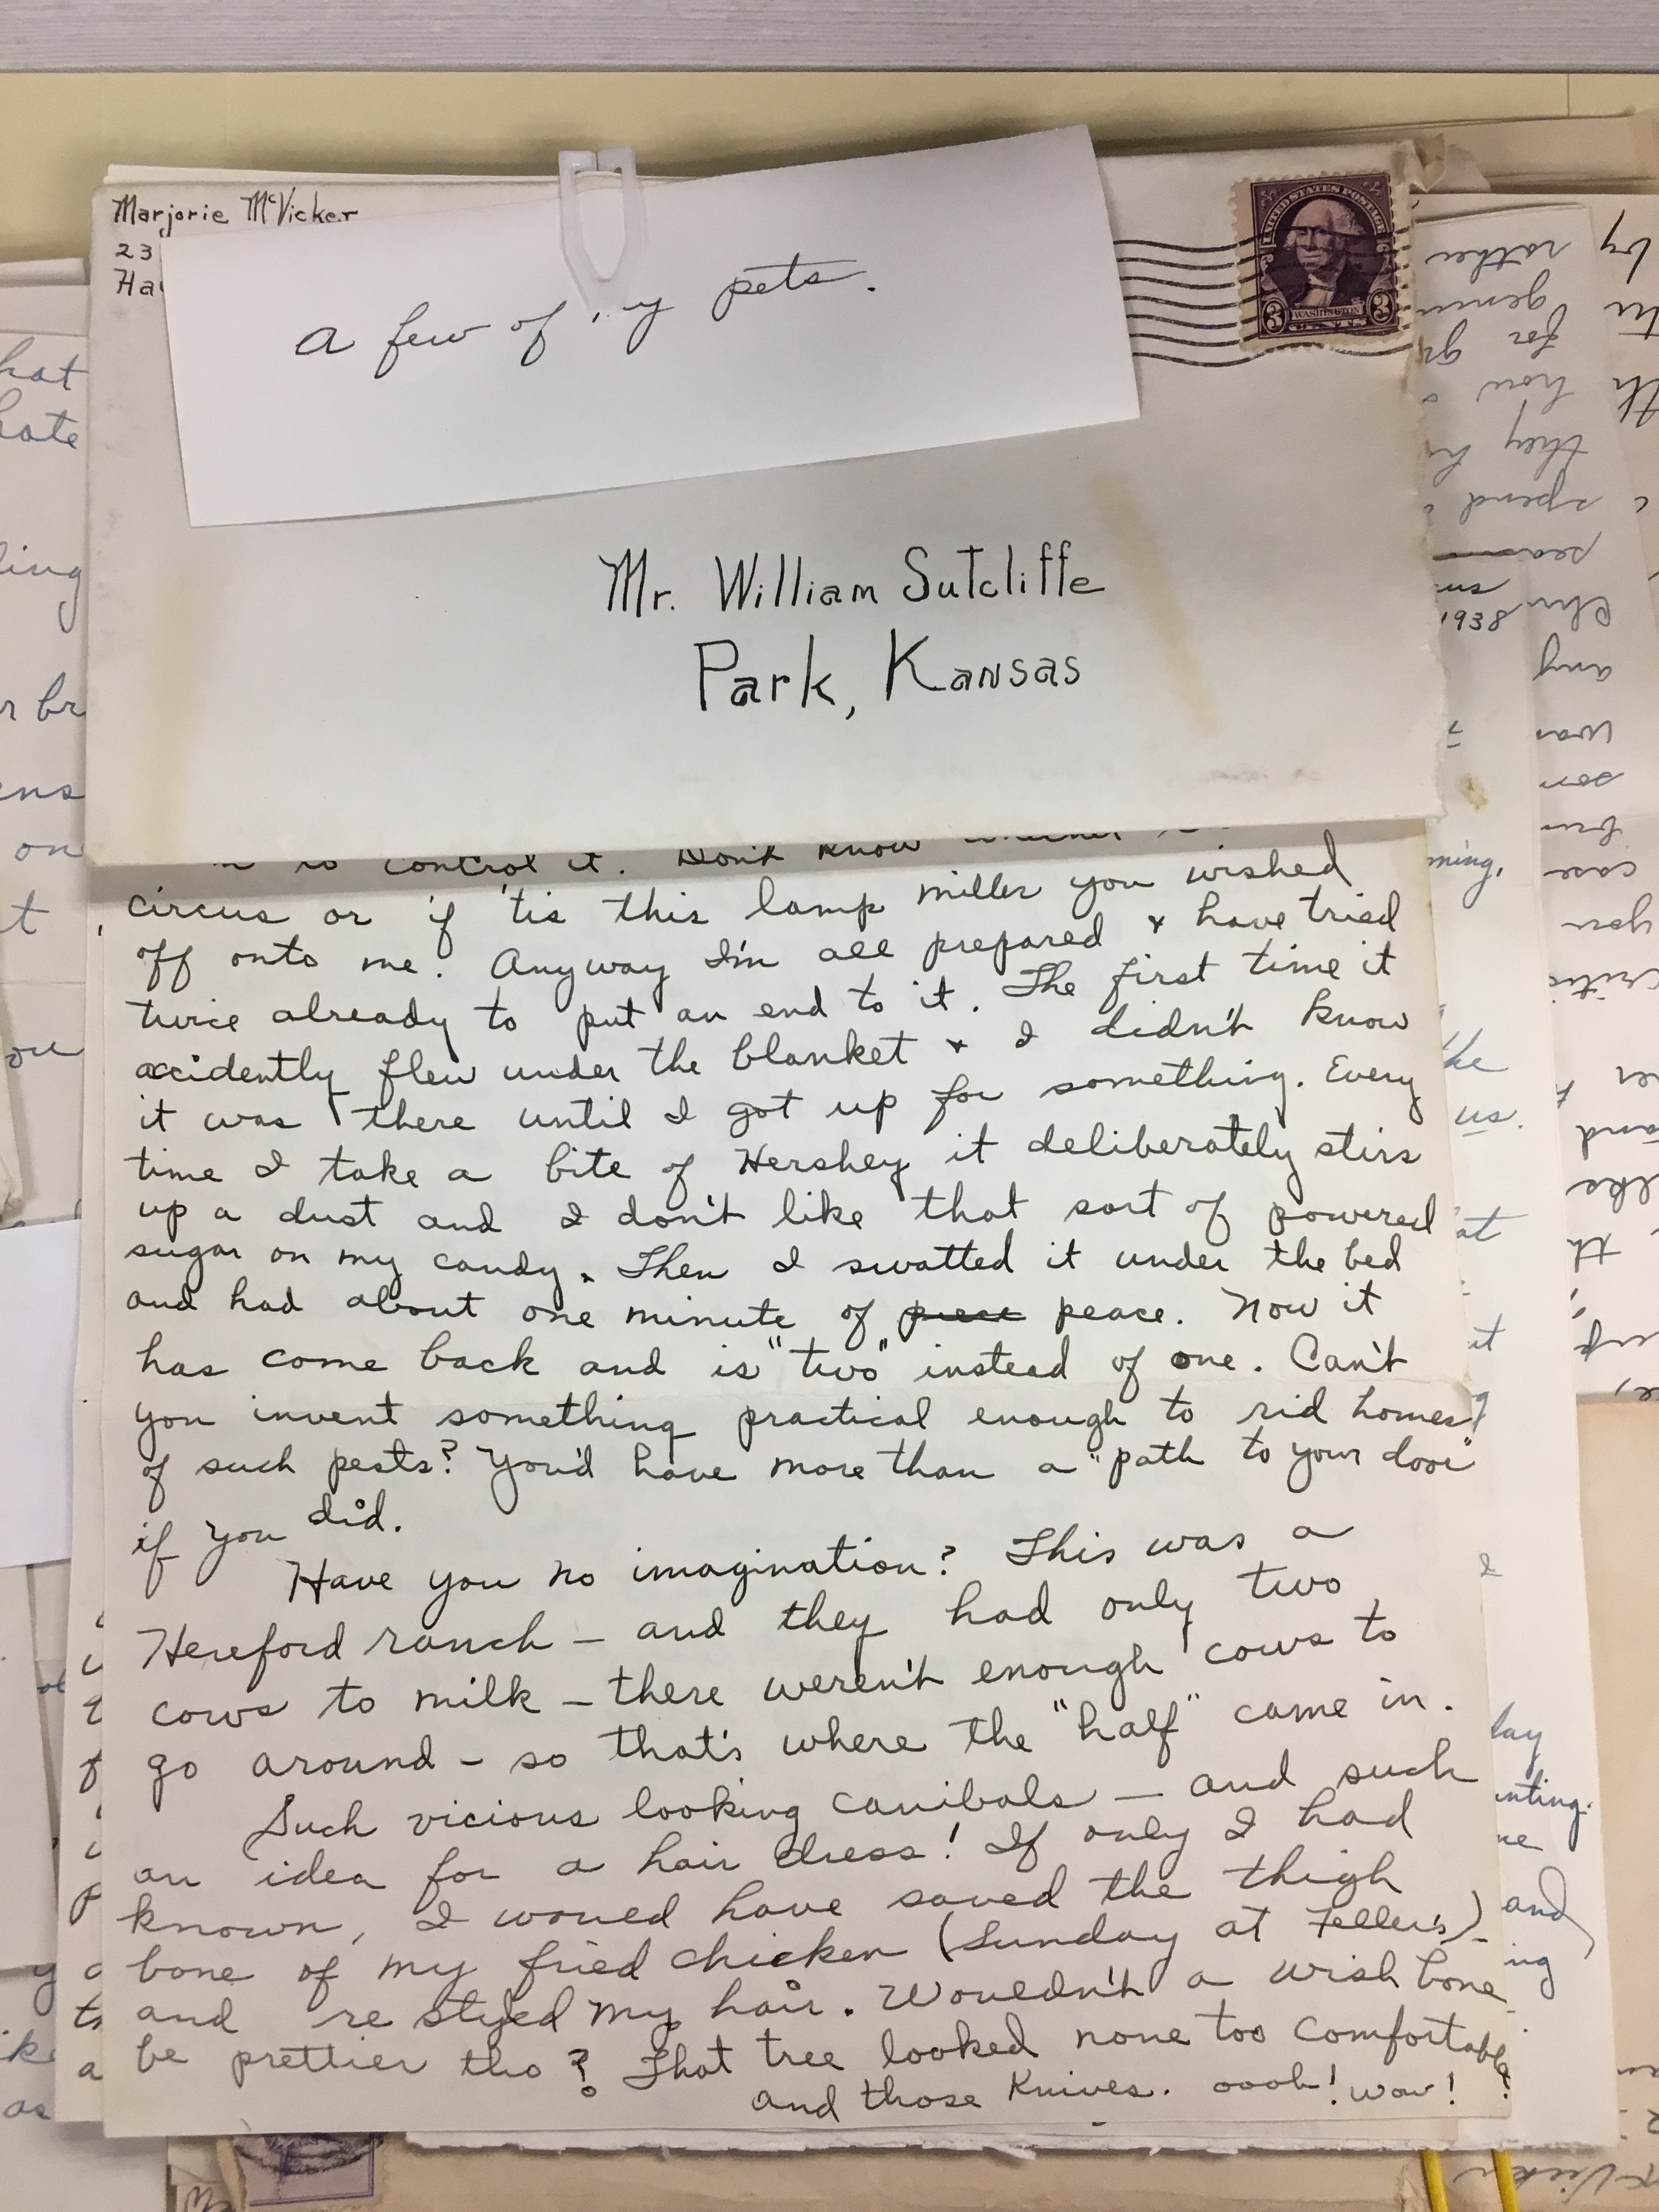 Marjorie McVicker
23
Ha
a few of my pets.
UNITED STATES POSTAGE
3 WASHINGTON 3
Mr. William Sutcliffe
Park, Kansas
to control it. Don't know
circus or if 'tis this lamp miller you wished
off onto me. Anyway I'm all prepared & have tried
twice already to put an end to it. The first time it
accidently flew under the blanket & I didn't know
it was there until I got up for something. Every
time I take a bite of Hershey it deliberately stirs
up a dust and I don't like that sort of powered
sugar on my candy. Then I swatted it under the bed
and had about one minute of piece peace. Now it
has come back and is "two" instead of one. Can't
you invent something practical enough to rid homes
of such pests? You'd have more than a "path to your door"
if you did.
Have you no imagination? This was a
Hereford ranch – and they had only two
cows to milk – there weren't enough cows to
go around – so that's where the "half" came in.
Such vicious looking canibals – and such
an idea for a hair dress! If only I had
known, I would have saved the thigh
bone of my fried chicken (Sunday at Feller's)
and restyled my hair. Wouldn't a wish bone
be prettier tho? That tree looked none too comfortable!
and those Knives. oooh! wow!
hat
hate
ling
br
ens
on
t
ou
as
by
rather
for
how
they
spend
1938
any
was
case
you
and
ming,
the
us.
at
it
I
lay
nting.
ne
and
ing